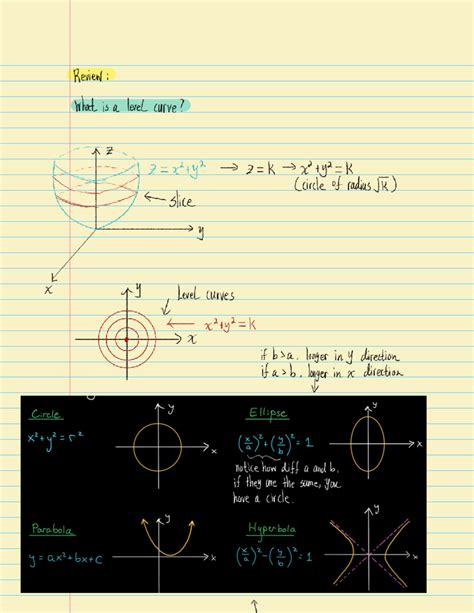 Review:
What is a level curve?
z
z = x²+y² → z = k → x²+y² = k
(circle of radius √k)
slice
y
x
y
Level curves
x²+y² = k
x
if b>a, longer in y direction
if a>b, longer in x direction
Circle
x²+y² = r²
y
x
Ellipse
(x/a)²+(y/b)² = 1
notice how diff a and b,
if they are the same, you
have a circle.
y
x
Parabola
y = ax²+bx+c
y
x
Hyperbola
(x/a)²-(y/b)² = 1
y
x